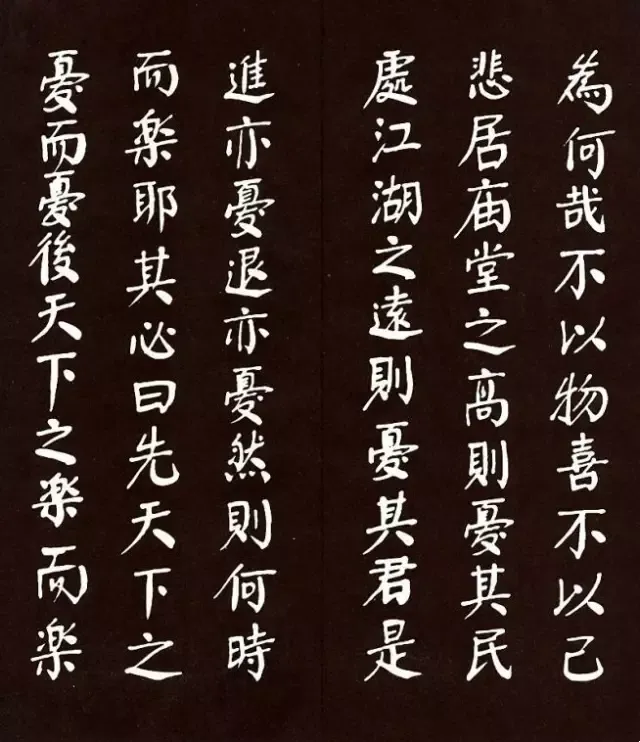 為何哉不以物喜不以己
悲居庙堂之高則憂其民
處江湖之遠則憂其君是
進亦憂退亦憂然則何時
而楽耶其必曰先天下之
憂而憂後天下之楽而楽